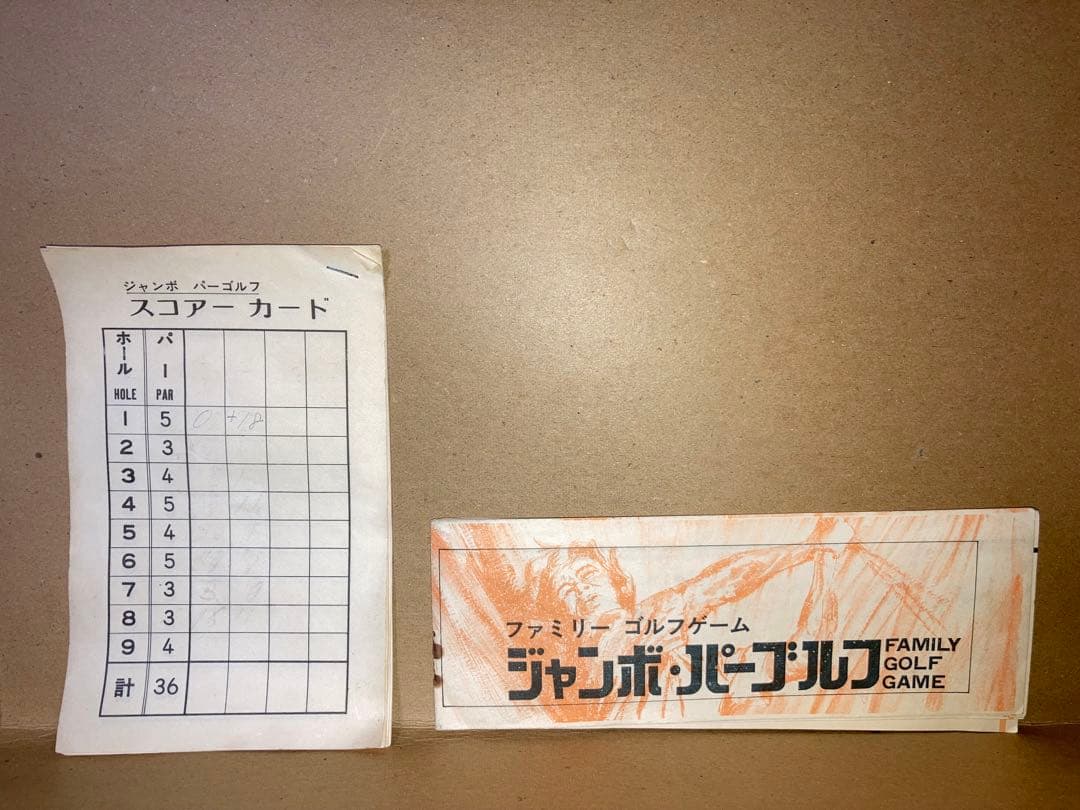 ジャンボ パーゴルフ
スコアー カード
ホール パー
HOLE PAR
1 5 0 +18
2 3
3 4
4 5
5 4
6 5
7 3
8 3
9 4
計 36
ファミリー ゴルフゲーム
ジャンボ・パーゴルフ
FAMILY
GOLF
GAME